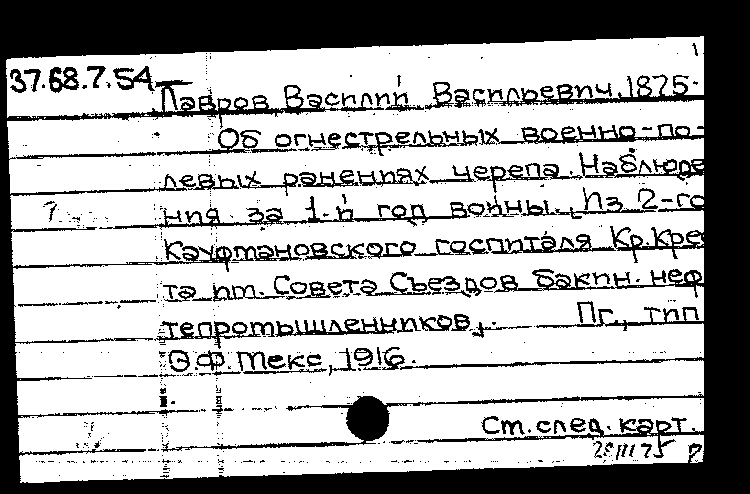 37.68.7.54
Лавров, Василий Васильевич, 1875-
Об огнестрельных военно-по-
левых ранениях черепа. Наблюде
ния за 1-й год войны. Из 2-го
Кауфмановского госпиталя Кр. Крес
та им. Совета Съездов бакин. неф
тепромышленников. Пг., тип
Э.Ф. Мекс, 1916.
Ст. след. карт.